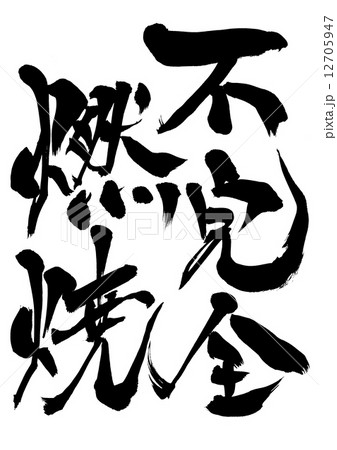 不完全
燃焼
PIXTA
pixta.jp - 12705947